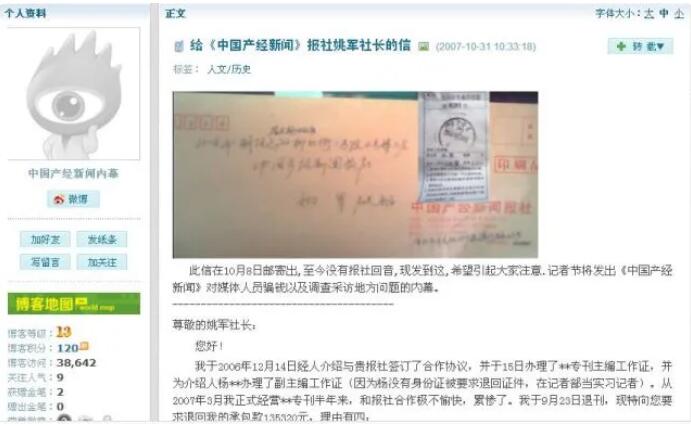 个人资料
中国产经新闻内幕
微博
加好友
发纸条
写留言
加关注
博客地图
world map
博客等级：13
博客积分：120
博客访问：38,642
关注人气：9
获赠金笔：2
赠出金笔：0
正文
字体大小：大 中 小
给《中国产经新闻》报社姚军社长的信
(2007-10-31 10:33:18)
转载▼
标签： 人文/历史
印刷
中国产经新闻报社
此信在10月8日邮寄出,至今没有报社回音,现发到这,希望引起大家注意.记者节将发出《中国产经
新闻》对媒体人员骗钱以及调查采访地方问题的内幕。
----------------------------------------
尊敬的姚军社长：
您好！
我于2006年12月14日经人介绍与贵报社签订了合作协议，并于15日办理了**专刊主编工作证，并
为介绍人杨**办理了副主编工作证（因为杨没有身份证被要求退回证件，在记者部当实习记者）。从
2007年3月我正式经营**专刊半年来，和报社合作极不愉快，累惨了。我于9月23日退刊，现特向您要
求退回我的承包款135320元，理由有四：